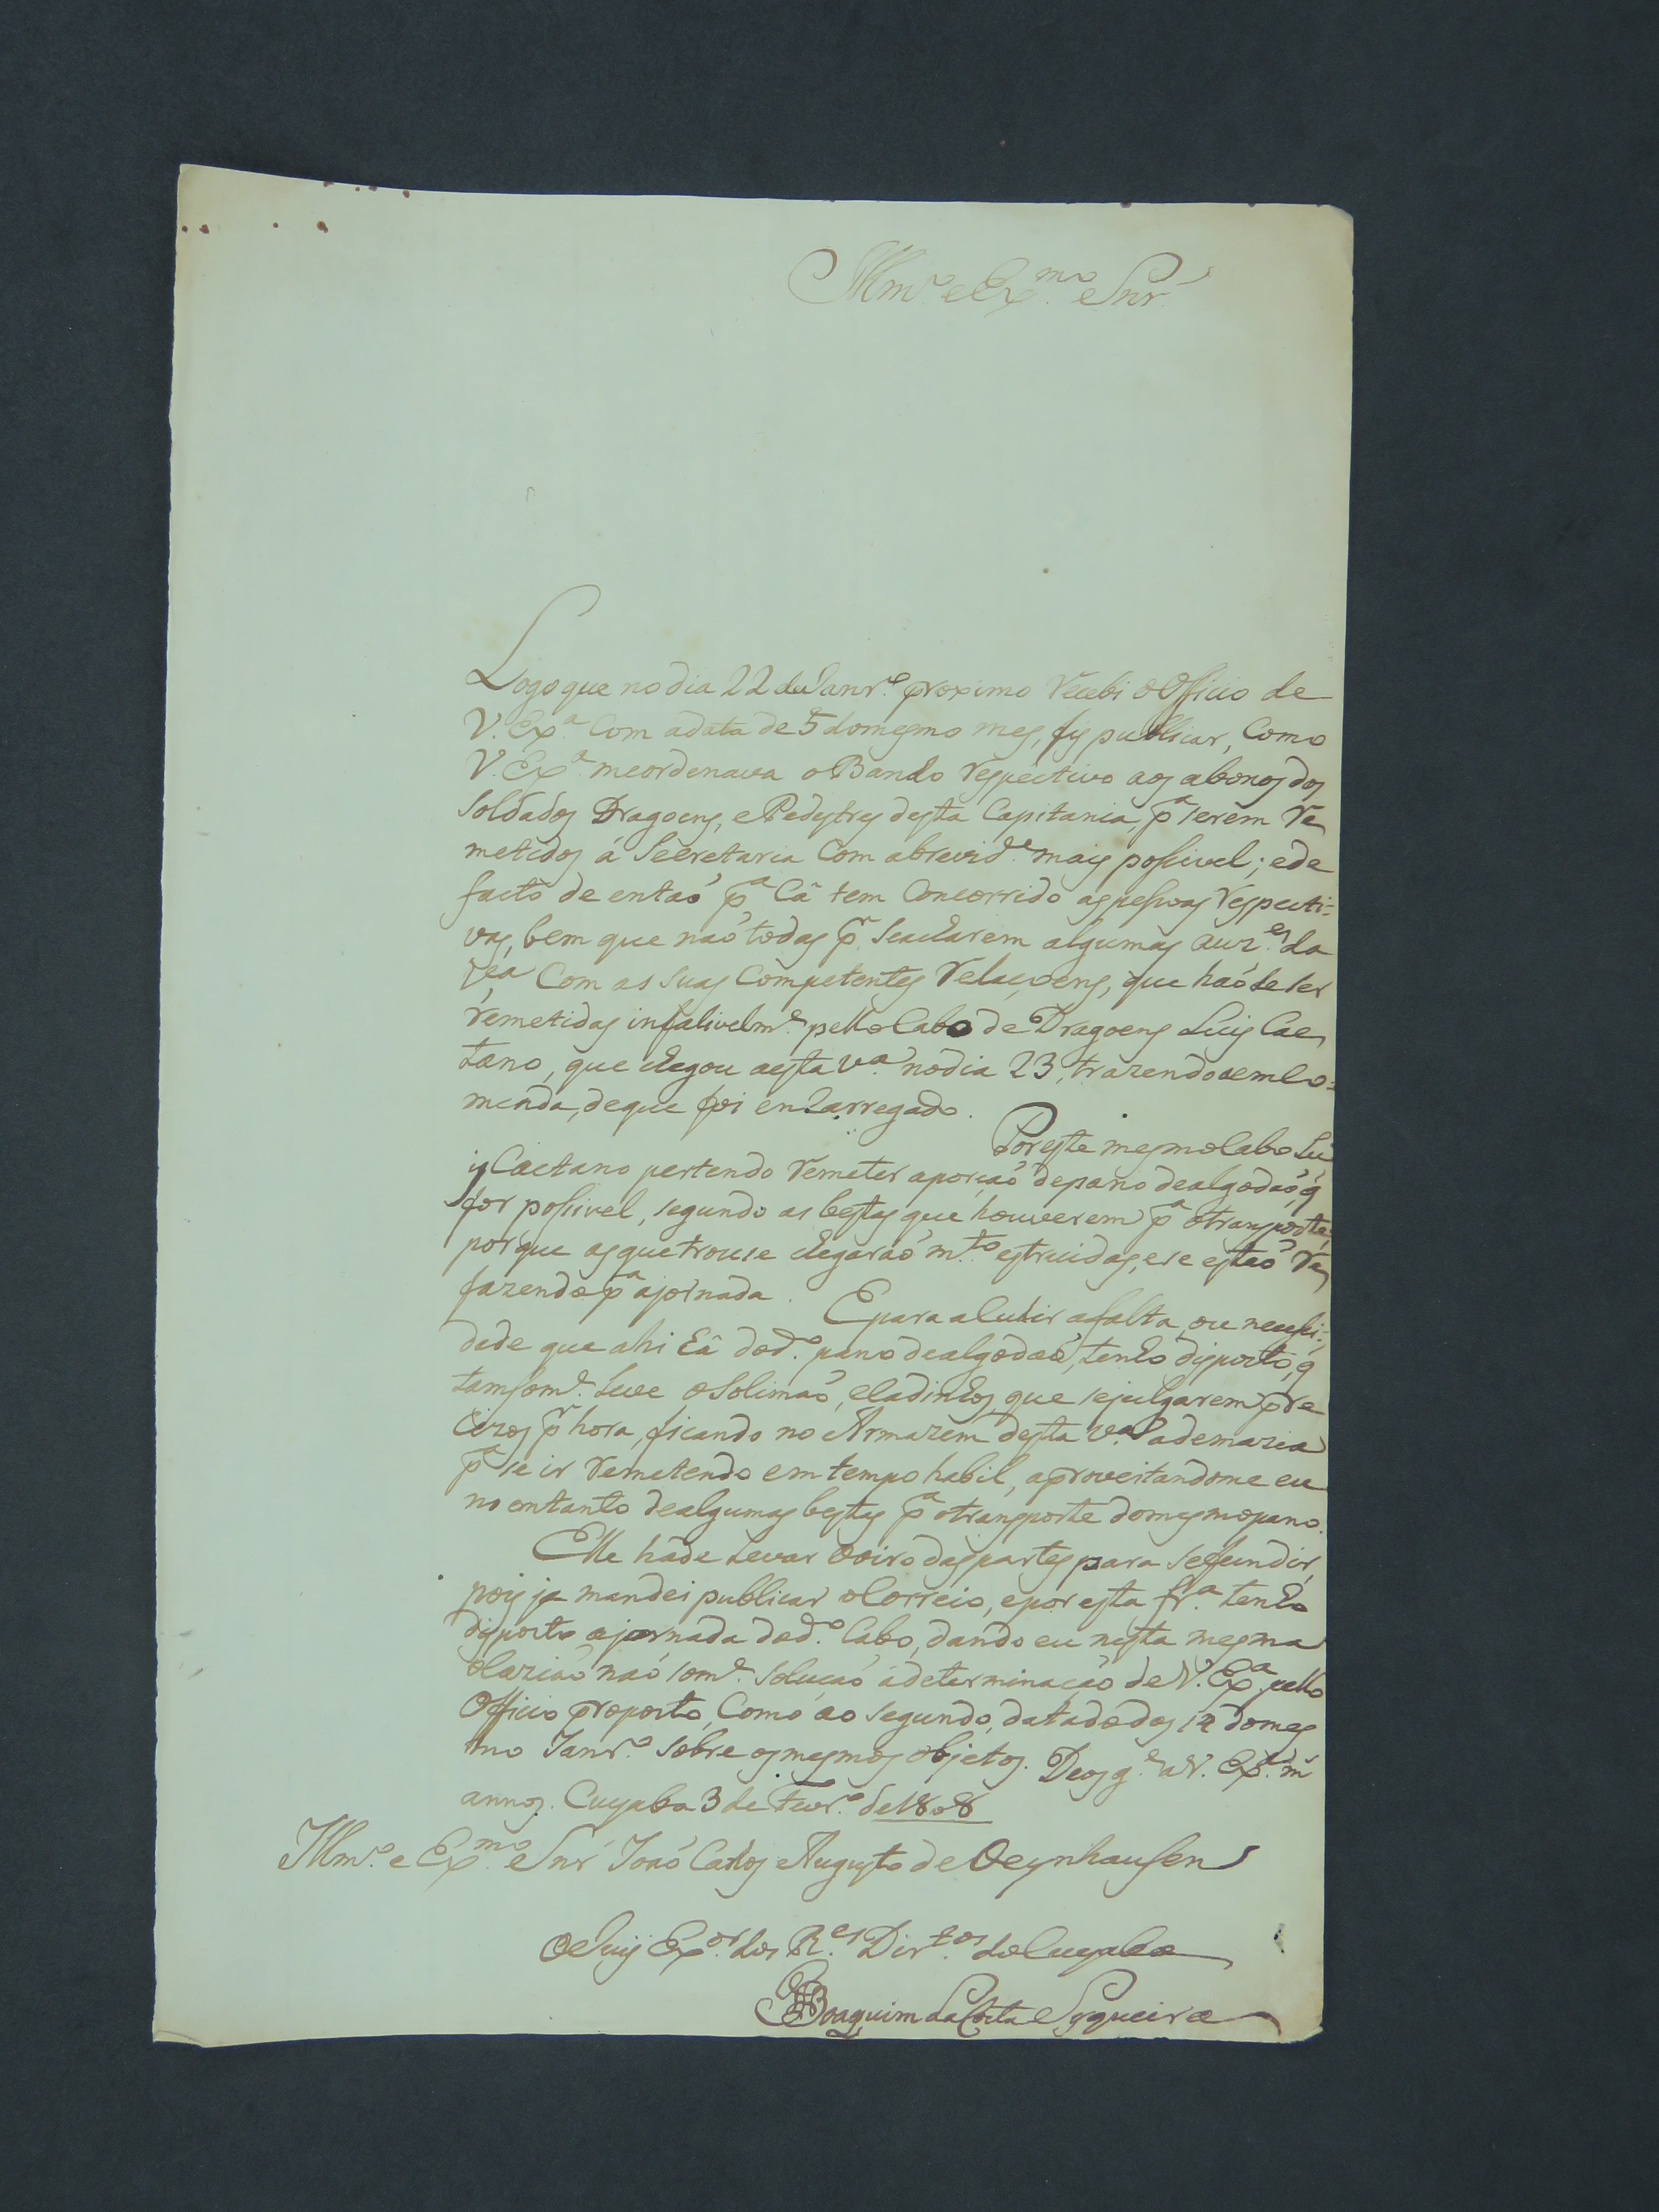 Illmº. e Exmº. Snr.
Logo que no dia 22 de Janrº. proximo recebi o Officio de
V. Exª. Com a data de 5 do mesmo mes, fis publicar, Como
V. Exª. me ordenava o Bando respectivo aos abonos dos
Soldados Dragoens, e Pedestres desta Capitania, pª. serem re
metidos á Secretaria Com a brevidᵉ. mais possivel; e de
facto de entaõ pª. Cá tem Concorrido as pessoas respecti=
vas, bem que naõ todas pʳ. se acharem algumas auzᵉˢ. da
vª. Com as suas Competentes relaçoens, que haõ de ser
remetidas infalivelmᵉ. pello Cabo de Dragoens Luis Cae
tano, que chegou a esta vª. no dia 23, trazendo a emCo=
menda, de que foi enCarregado.
Por este mesmo Cabo Lu
is Caetano pertendo remeter a porçaõ de pano de algodaõ, q̃
for possivel, segundo as bestas que houverem pª. o transporte,
porque as que trouse chegaraõ mᵗᵒ. estruidas, e se estaõ re
fazendo pª. a jornada. E para aCudir a falta, ou necessi=
dade que ahi há do dº. pano de algodaõ, tenho disposto, q̃
tamsomᵉ. Leve o Solimaõ, e ladinhos, que se julgarem pre
cizos pʳ. hora, ficando no Armazem desta vª. a demazia
pª. se ir remetendo em tempo habil, aproveitandome eu
no entanto de algumas bestas pª. o transporte do mesmo pano.
Elle hade Levar o oiro das partes para se fundir,
pois ja mandei publicar o Correio, e por esta frª. tenho
disposto a jornada do dº. Cabo, dando eu nesta mesma
oCaziaõ naõ somᵉ. soluçaõ á determinaçaõ de V. Exª. pello
Officio proposto, Como ao segundo, datado dos 12 do mes
mo Janrº. sobre os mesmos objetos. Deos gᵉ. a V. Exª. mˢ
annos. Cuyaba 3 de Fevrº. de 1808
Illmº. e Exmº. Snr João Carlos Augusto de Oeynhausen
O Juis Exᵒʳ. dos Rᵉˢ. Dirᵗᵒˢ. do Cuyaba
Joaquim da Costa Syqueira